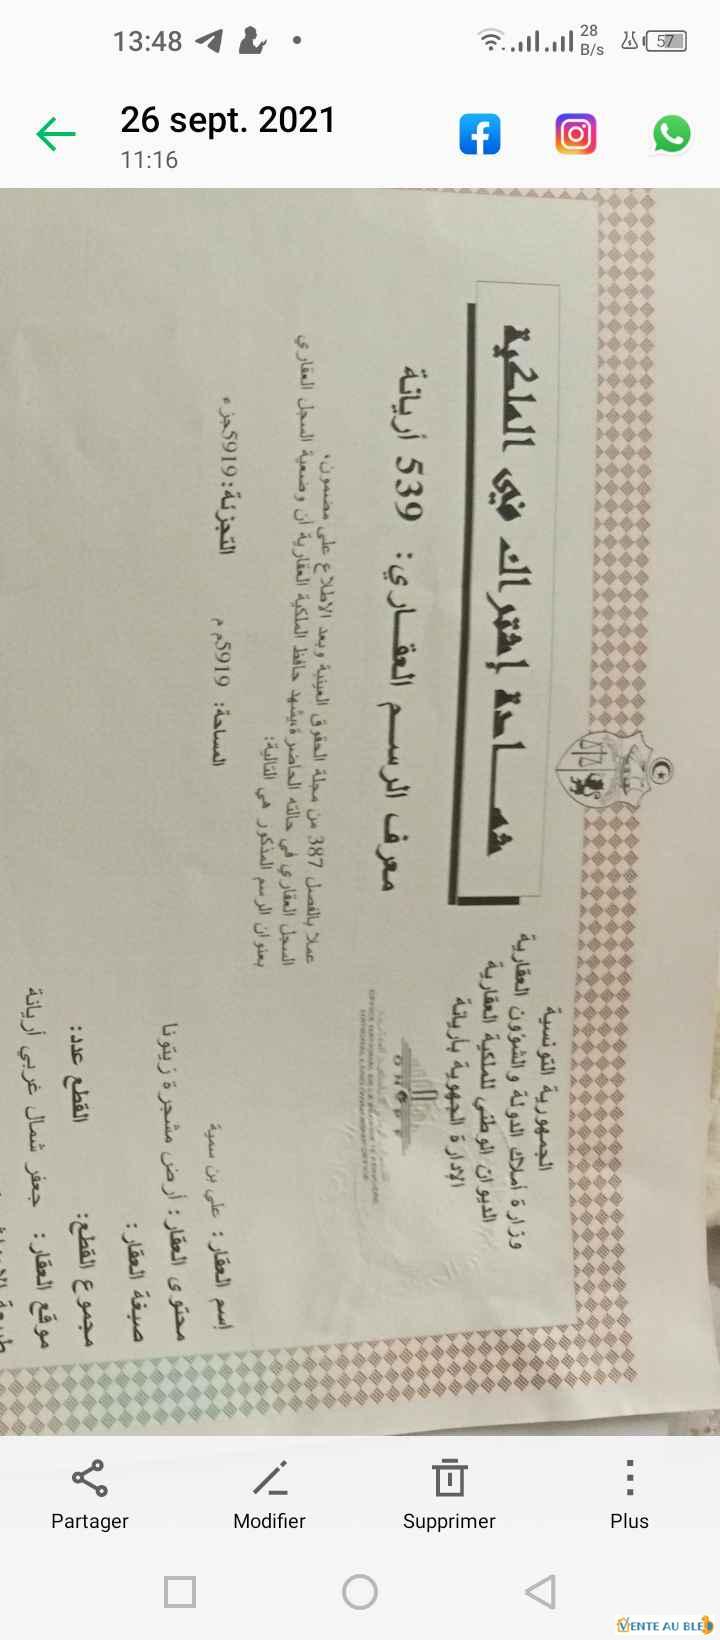 13:48
28
B/s
57
26 sept. 2021
11:16
الجمهورية التونسية
وزارة أملاك الدولة والشؤون العقارية
الديوان الوطني للملكية العقارية
الإدارة الجهوية بأريانة
شهـــادة إشتراك في الملكية
معرف الرســم العقــاري: 539 أريانة
عملا بالفصل 387 من مجلة الحقوق العينية وبعد الاطلاع على مضمون،
السجل العقاري في حالته الحاضرة يشهد حافظ الملكية العقارية أن وضعية السجل العقاري
بعنوان الرسم المذكور هي التالية:
إسم العقار: علي بن سمية
المساحة: 5919م م
التجزئة: 5919جزء
محتوى العقار: أرض مشجرة زيتونا
صبغة العقار:
مجموع القطع:
القطع عدد:
موقع العقار: جعفر شمال غربي أريانة
Partager
Modifier
Supprimer
Plus
VENTE AU BLED